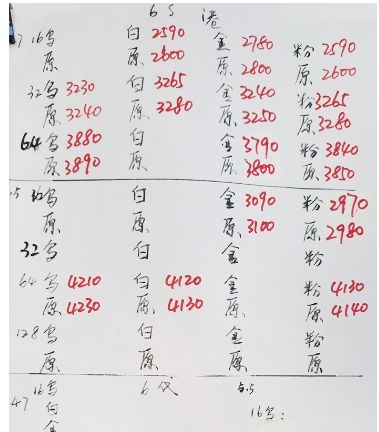 6S 港
7 16乌 白 2590 金 2780 粉 2590
原 原 2600 原 2800 原 2600
32乌 3230 白 3265 金 3240 粉 3265
原 3240 原 3280 原 3250 原 3280
64乌 3880 白 金 3790 粉 3840
原 3890 原 原 3800 原 3850
乌 白 金 3090 粉 2970
原 原 原 3100 原 2980
32乌 白 金 粉
64乌 4210 白 4120 金 粉 4130
原 4230 原 4130 原 原 4140
128乌 白 金 粉
原 原 原 原
16乌 6 5.5
47 白 16乌:
金